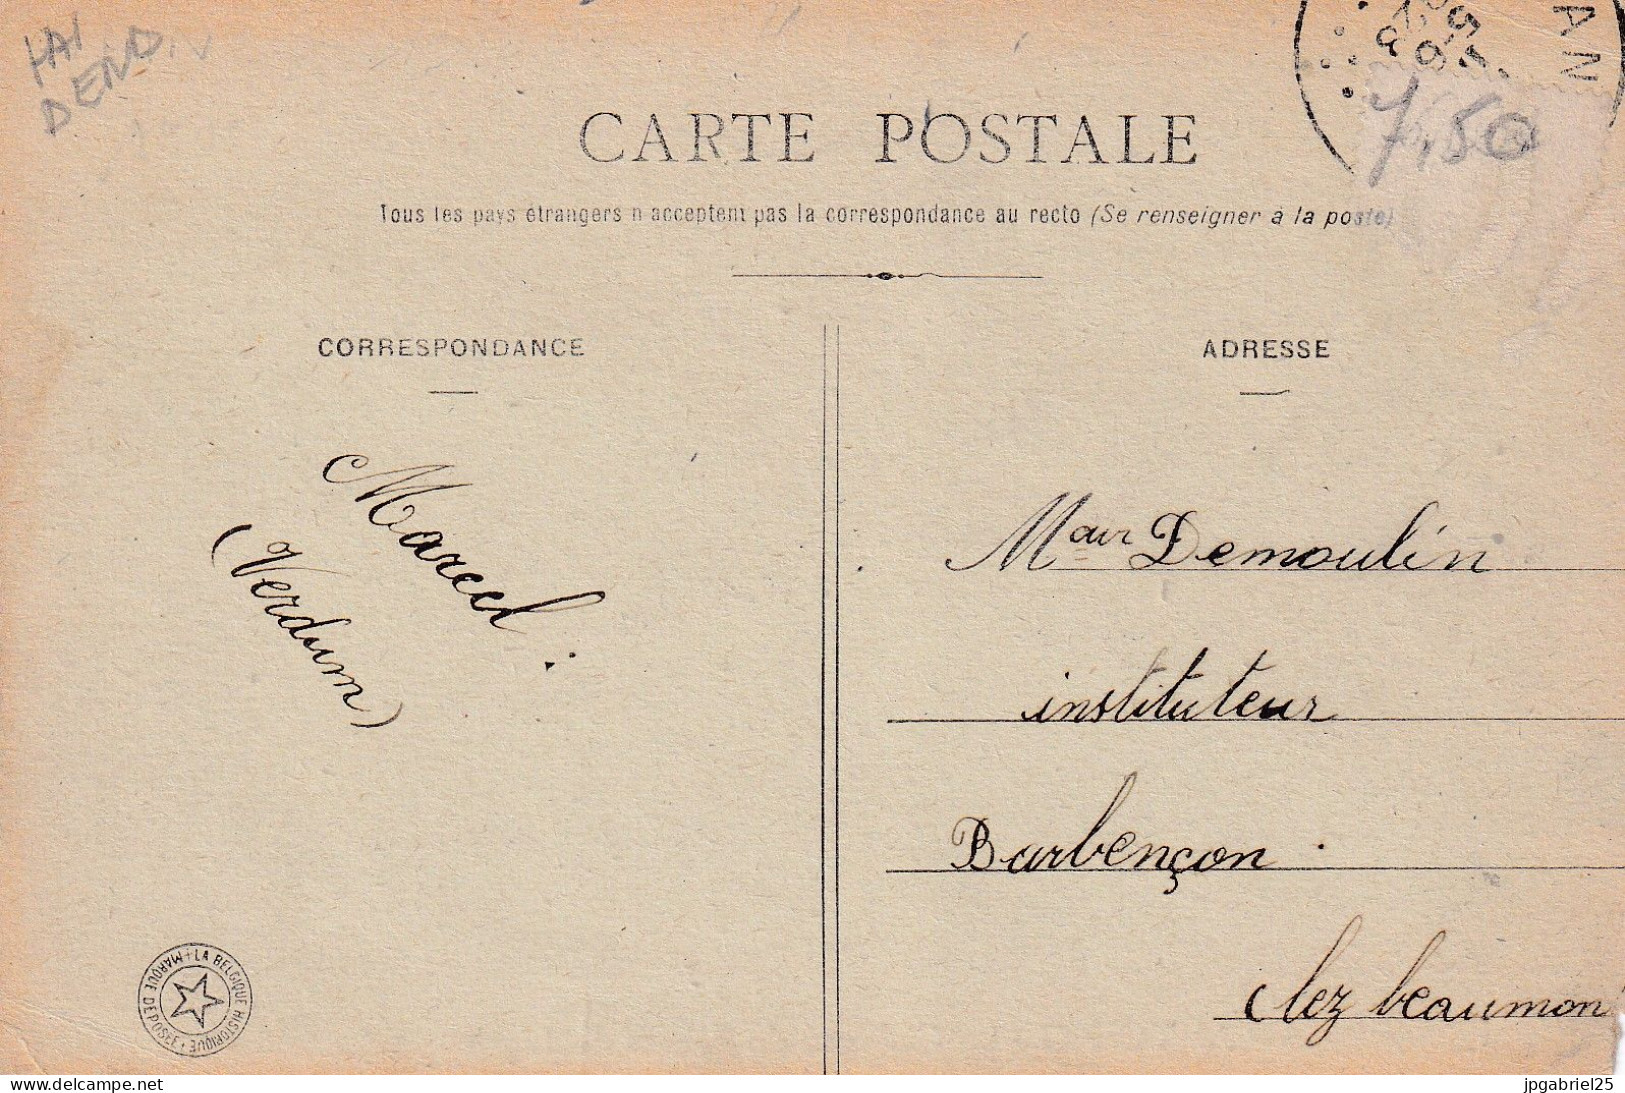 HAI
DENDIN
AN
7,50
CARTE POSTALE
Tous les pays étrangers n'acceptent pas la correspondance au recto (Se renseigner à la poste)
CORRESPONDANCE
ADRESSE
Marcel :
(Verdum)
Maur Demoulin
instituteur
Barbençon .
chez beaumon
LA BELGIQUE HISTORIQUE + MARQUE DÉPOSÉE +
website: delcampe.net
jpgabriel25